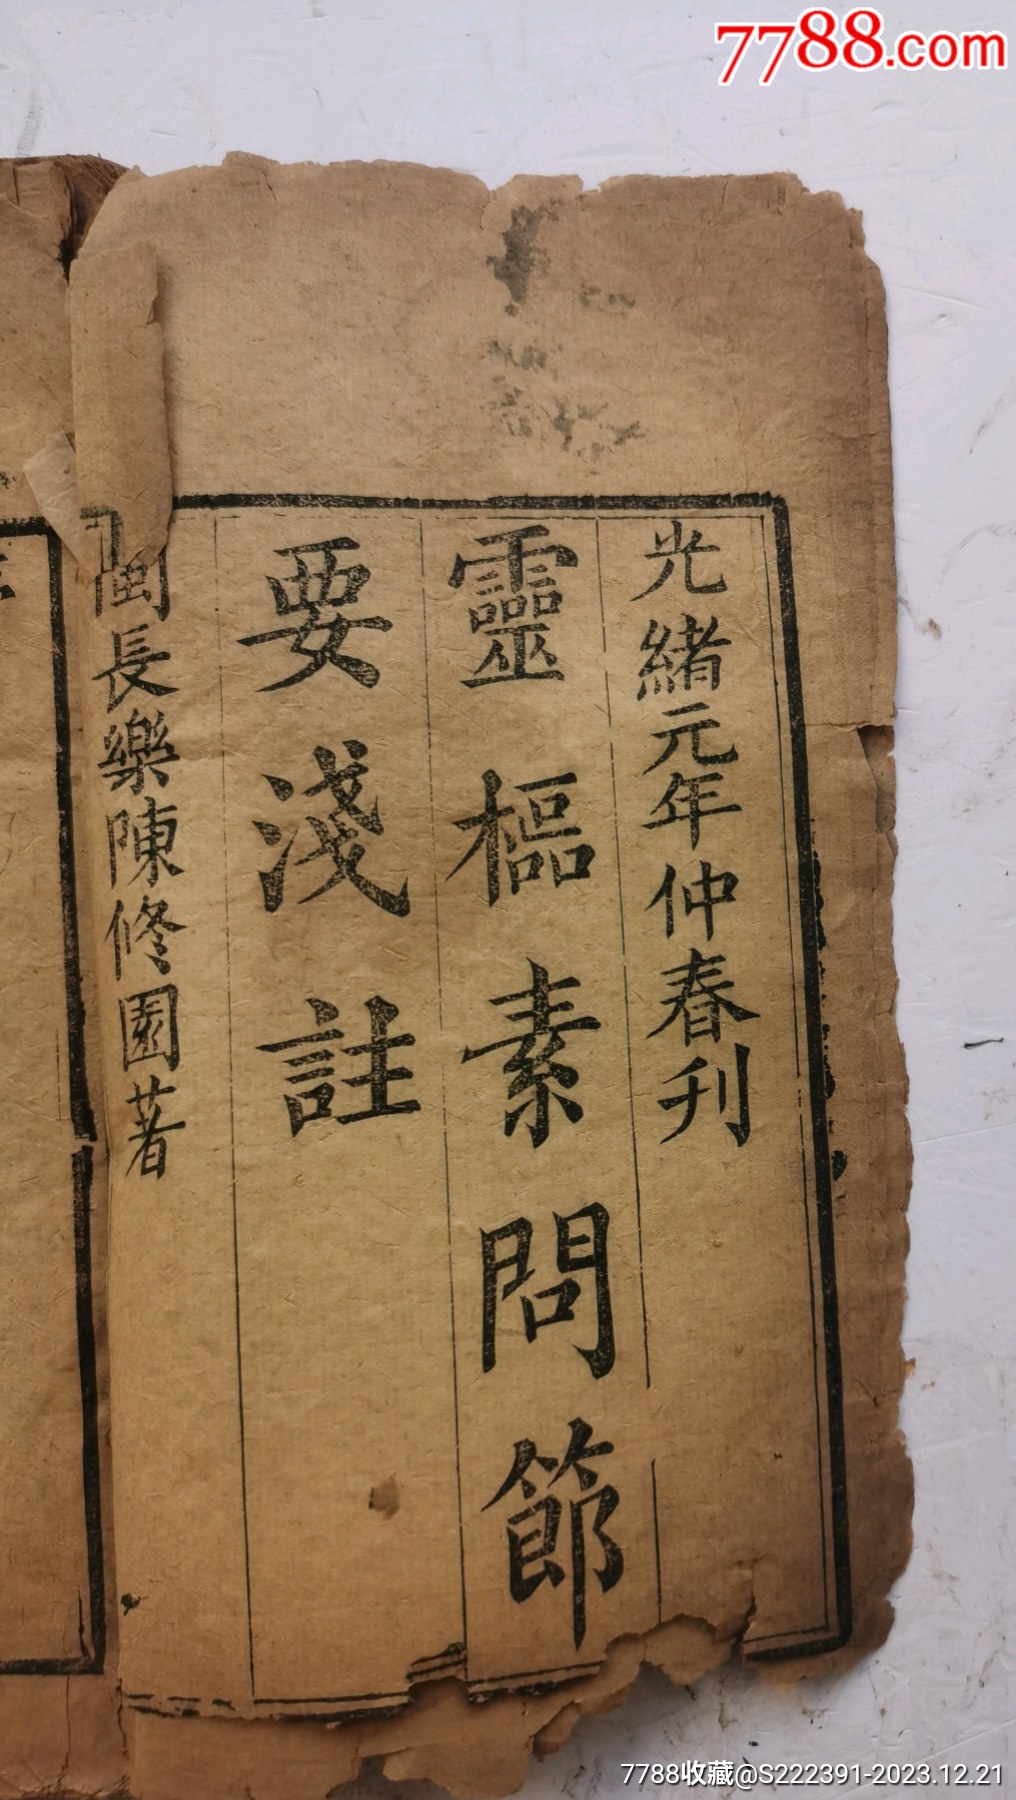 7788.com
光緒元年仲春刋
靈樞素問節
要淺註
閩長樂陳修園著
7788收藏@S222391-2023.12.21